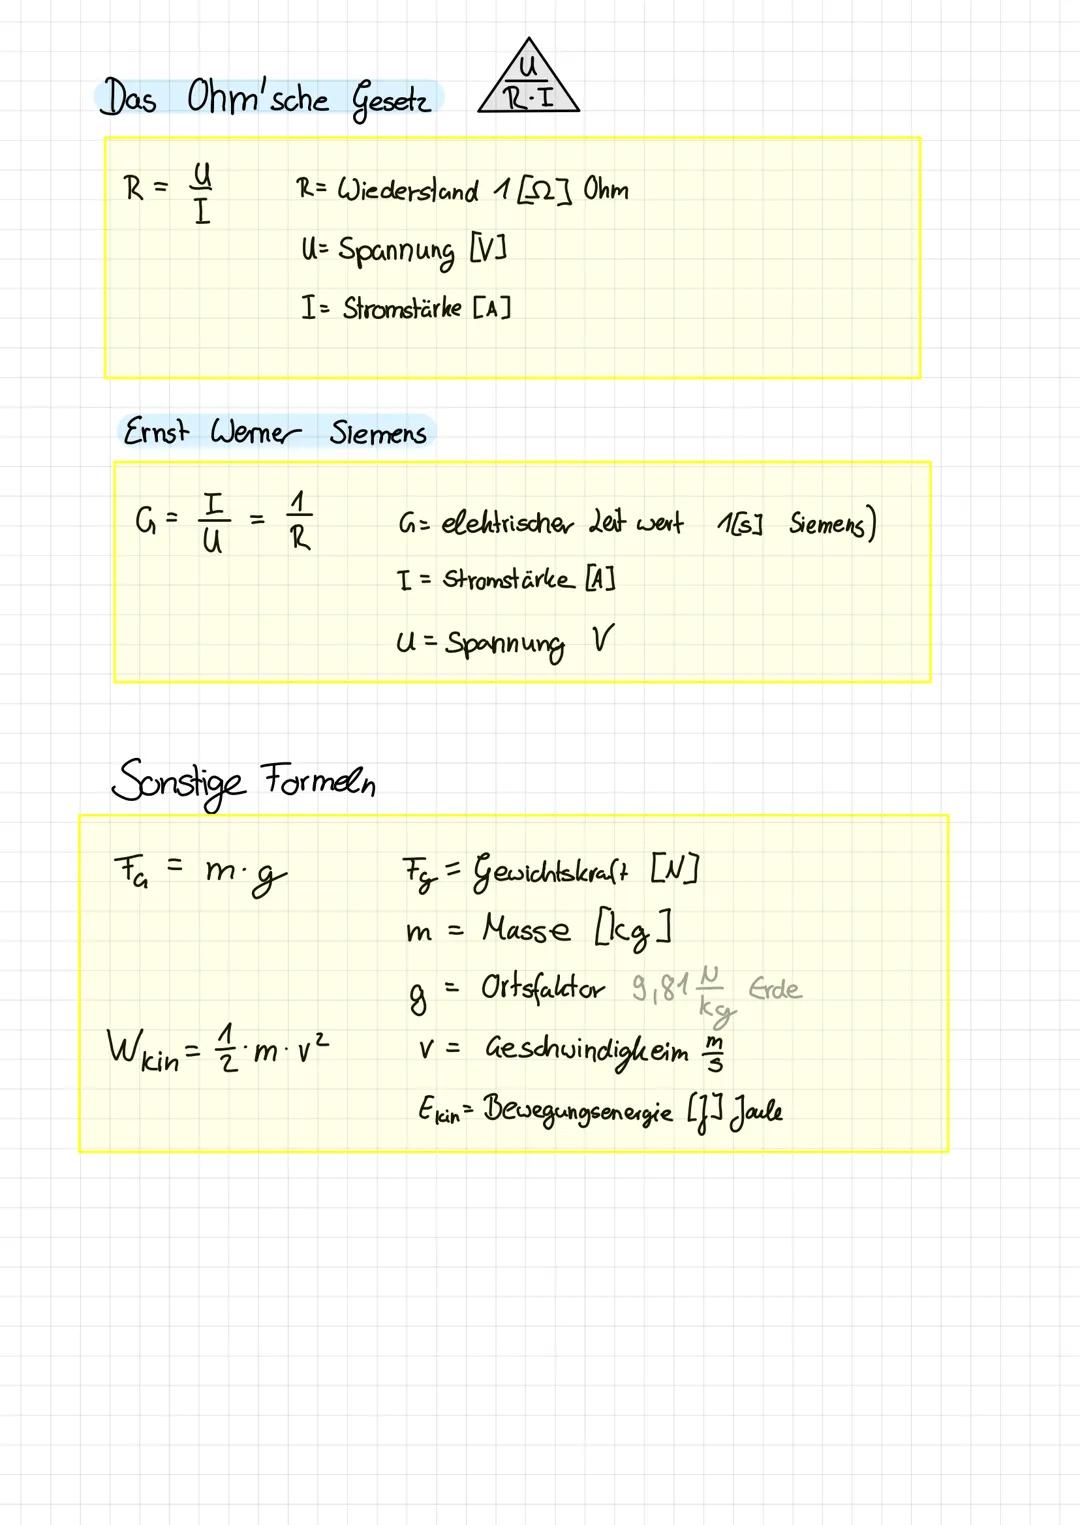 Das Ohm'sche Gesetz
U
R·I
R = U/I
R= Wiederstand 1 [Ω] Ohm
U= Spannung [V]
I= Stromstärke [A]
Ernst Werner Siemens
G = I/U = 1/R
G= elektrischer Leit wert 1[s] Siemens)
I = Stromstärke [A]
U = Spannung V
Sonstige Formeln
FG = m·g
Fg = Gewichtskraft [N]
m = Masse [kg]
g = Ortsfaktor 9,81 N/kg Erde
Wkin = 1/2 · m · v²
v = Geschwindigkeim m/s
Ekin = Bewegungsenergie [J] Joule